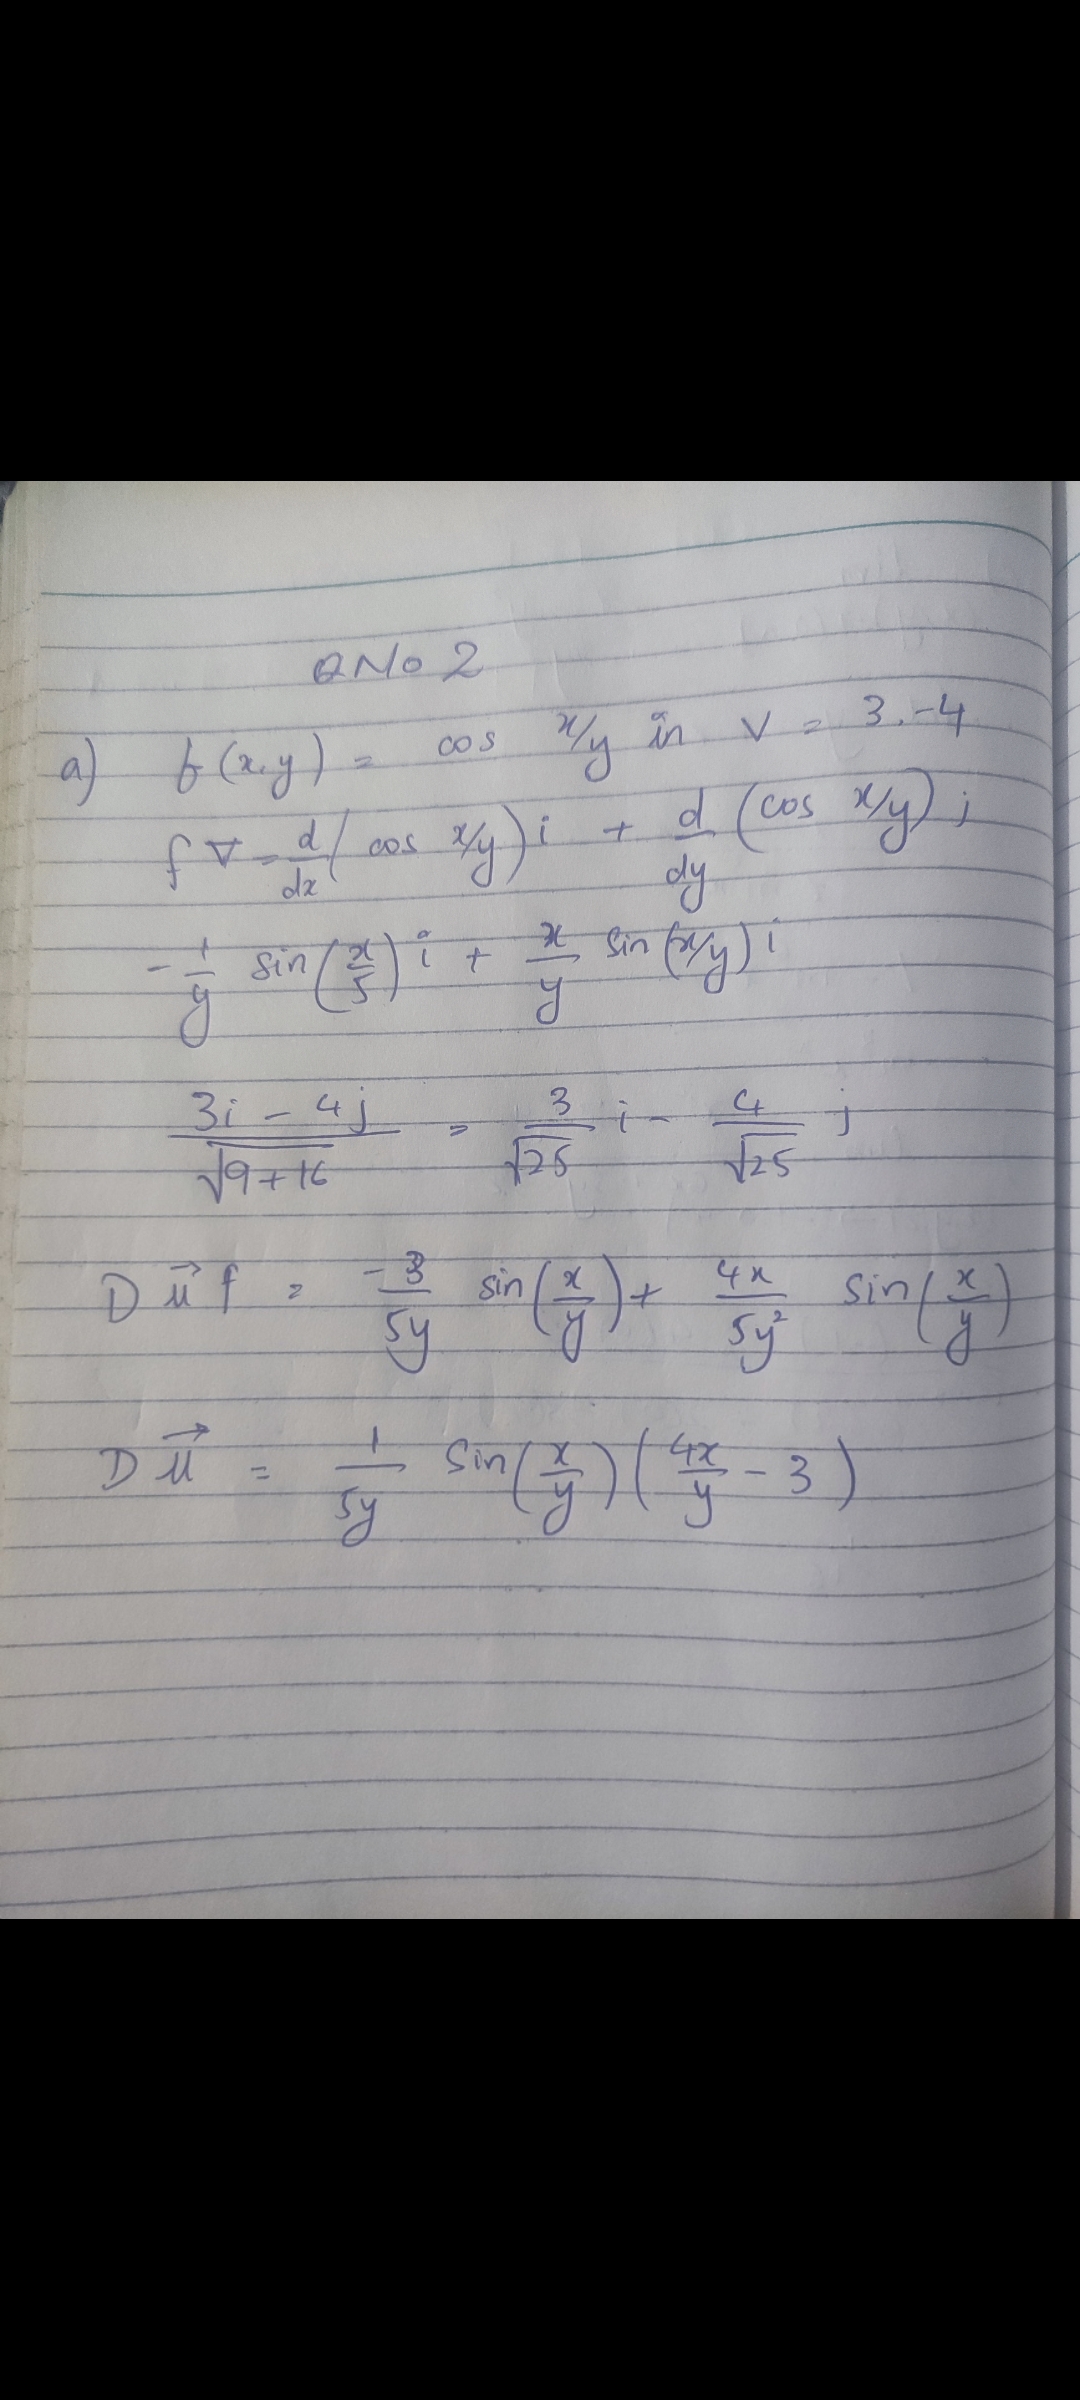 QNo 2
a) f(x,y) = cos x/y in v = 3,-4
f∇ = d/dx (cos x/y) i + d/dy (cos x/y) j
- 1/y sin(x/5) i + x/y sin(x/y) i
3i - 4j / √9+16 = 3/√25 i - 4/√25 j
D u⃗ f = -3/5y sin(x/y) + 4x/5y² sin(x/y)
D u⃗ = 1/5y Sin(x/y) (4x/y - 3)